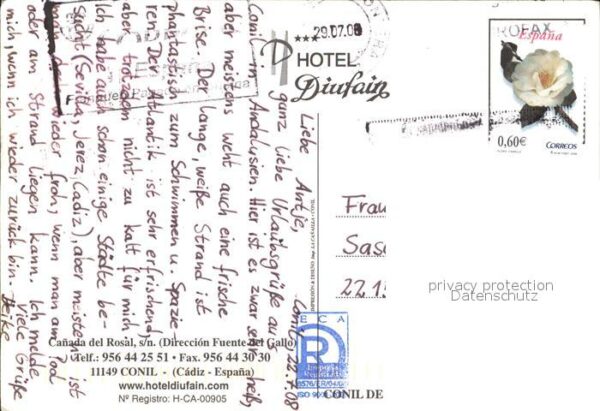 Conil, 22.7.08
Liebe Antje,
ganz liebe Urlaubsgrüße aus
Conil in Andalusien. Hier ist es zwar sehr heiß,
aber meistens weht auch eine frische
Brise. Der lange, weiße Strand ist
phantastisch zum Schwimmen u. Spazie-
ren. Der Atlantik ist sehr erfrischend,
aber trotzdem nicht zu kalt für mich.
Ich habe auch schon einige Städte be-
sucht (Sevilla, Jerez, Cadiz), aber meistens ist
man dann wieder froh, wenn man am Pool
oder am Strand liegen kann. Ich melde
mich, wenn ich wieder zurück bin. Viele Grüße
Heike
29.07.08
***
HOTEL
Diufain
España
0,60€
CORREOS
Frau
Sas
22 1
privacy protection
Datenschutz
Cañada del Rosal, s/n. (Dirección Fuente del Gallo)
Telf.: 956 44 25 51 • Fax. 956 44 30 30
11149 CONIL - (Cádiz - España)
www.hoteldiufain.com
Nº Registro: H-CA-00905
ECA
R
Empresa
Registrada
CONIL DE